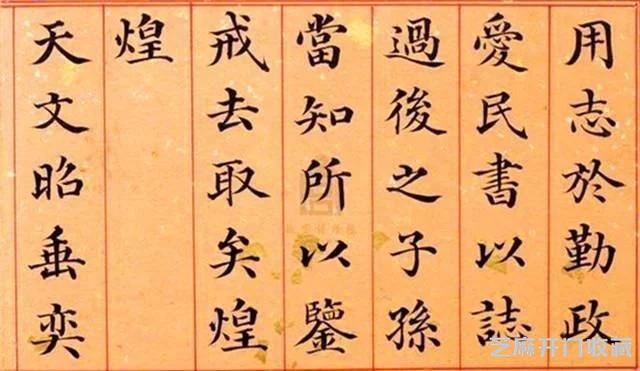 用志於勤政
愛民書以誌
過後之子孫
當知所以鑒
戒去取矣煌
煌
天文昭垂奕
芝麻开门收藏